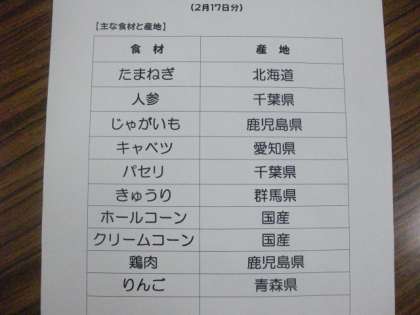 (2月17日分)
【主な食材と産地】
食材 産地
たまねぎ 北海道
人参 千葉県
じゃがいも 鹿児島県
キャベツ 愛知県
パセリ 千葉県
きゅうり 群馬県
ホールコーン 国産
クリームコーン 国産
鶏肉 鹿児島県
りんご 青森県